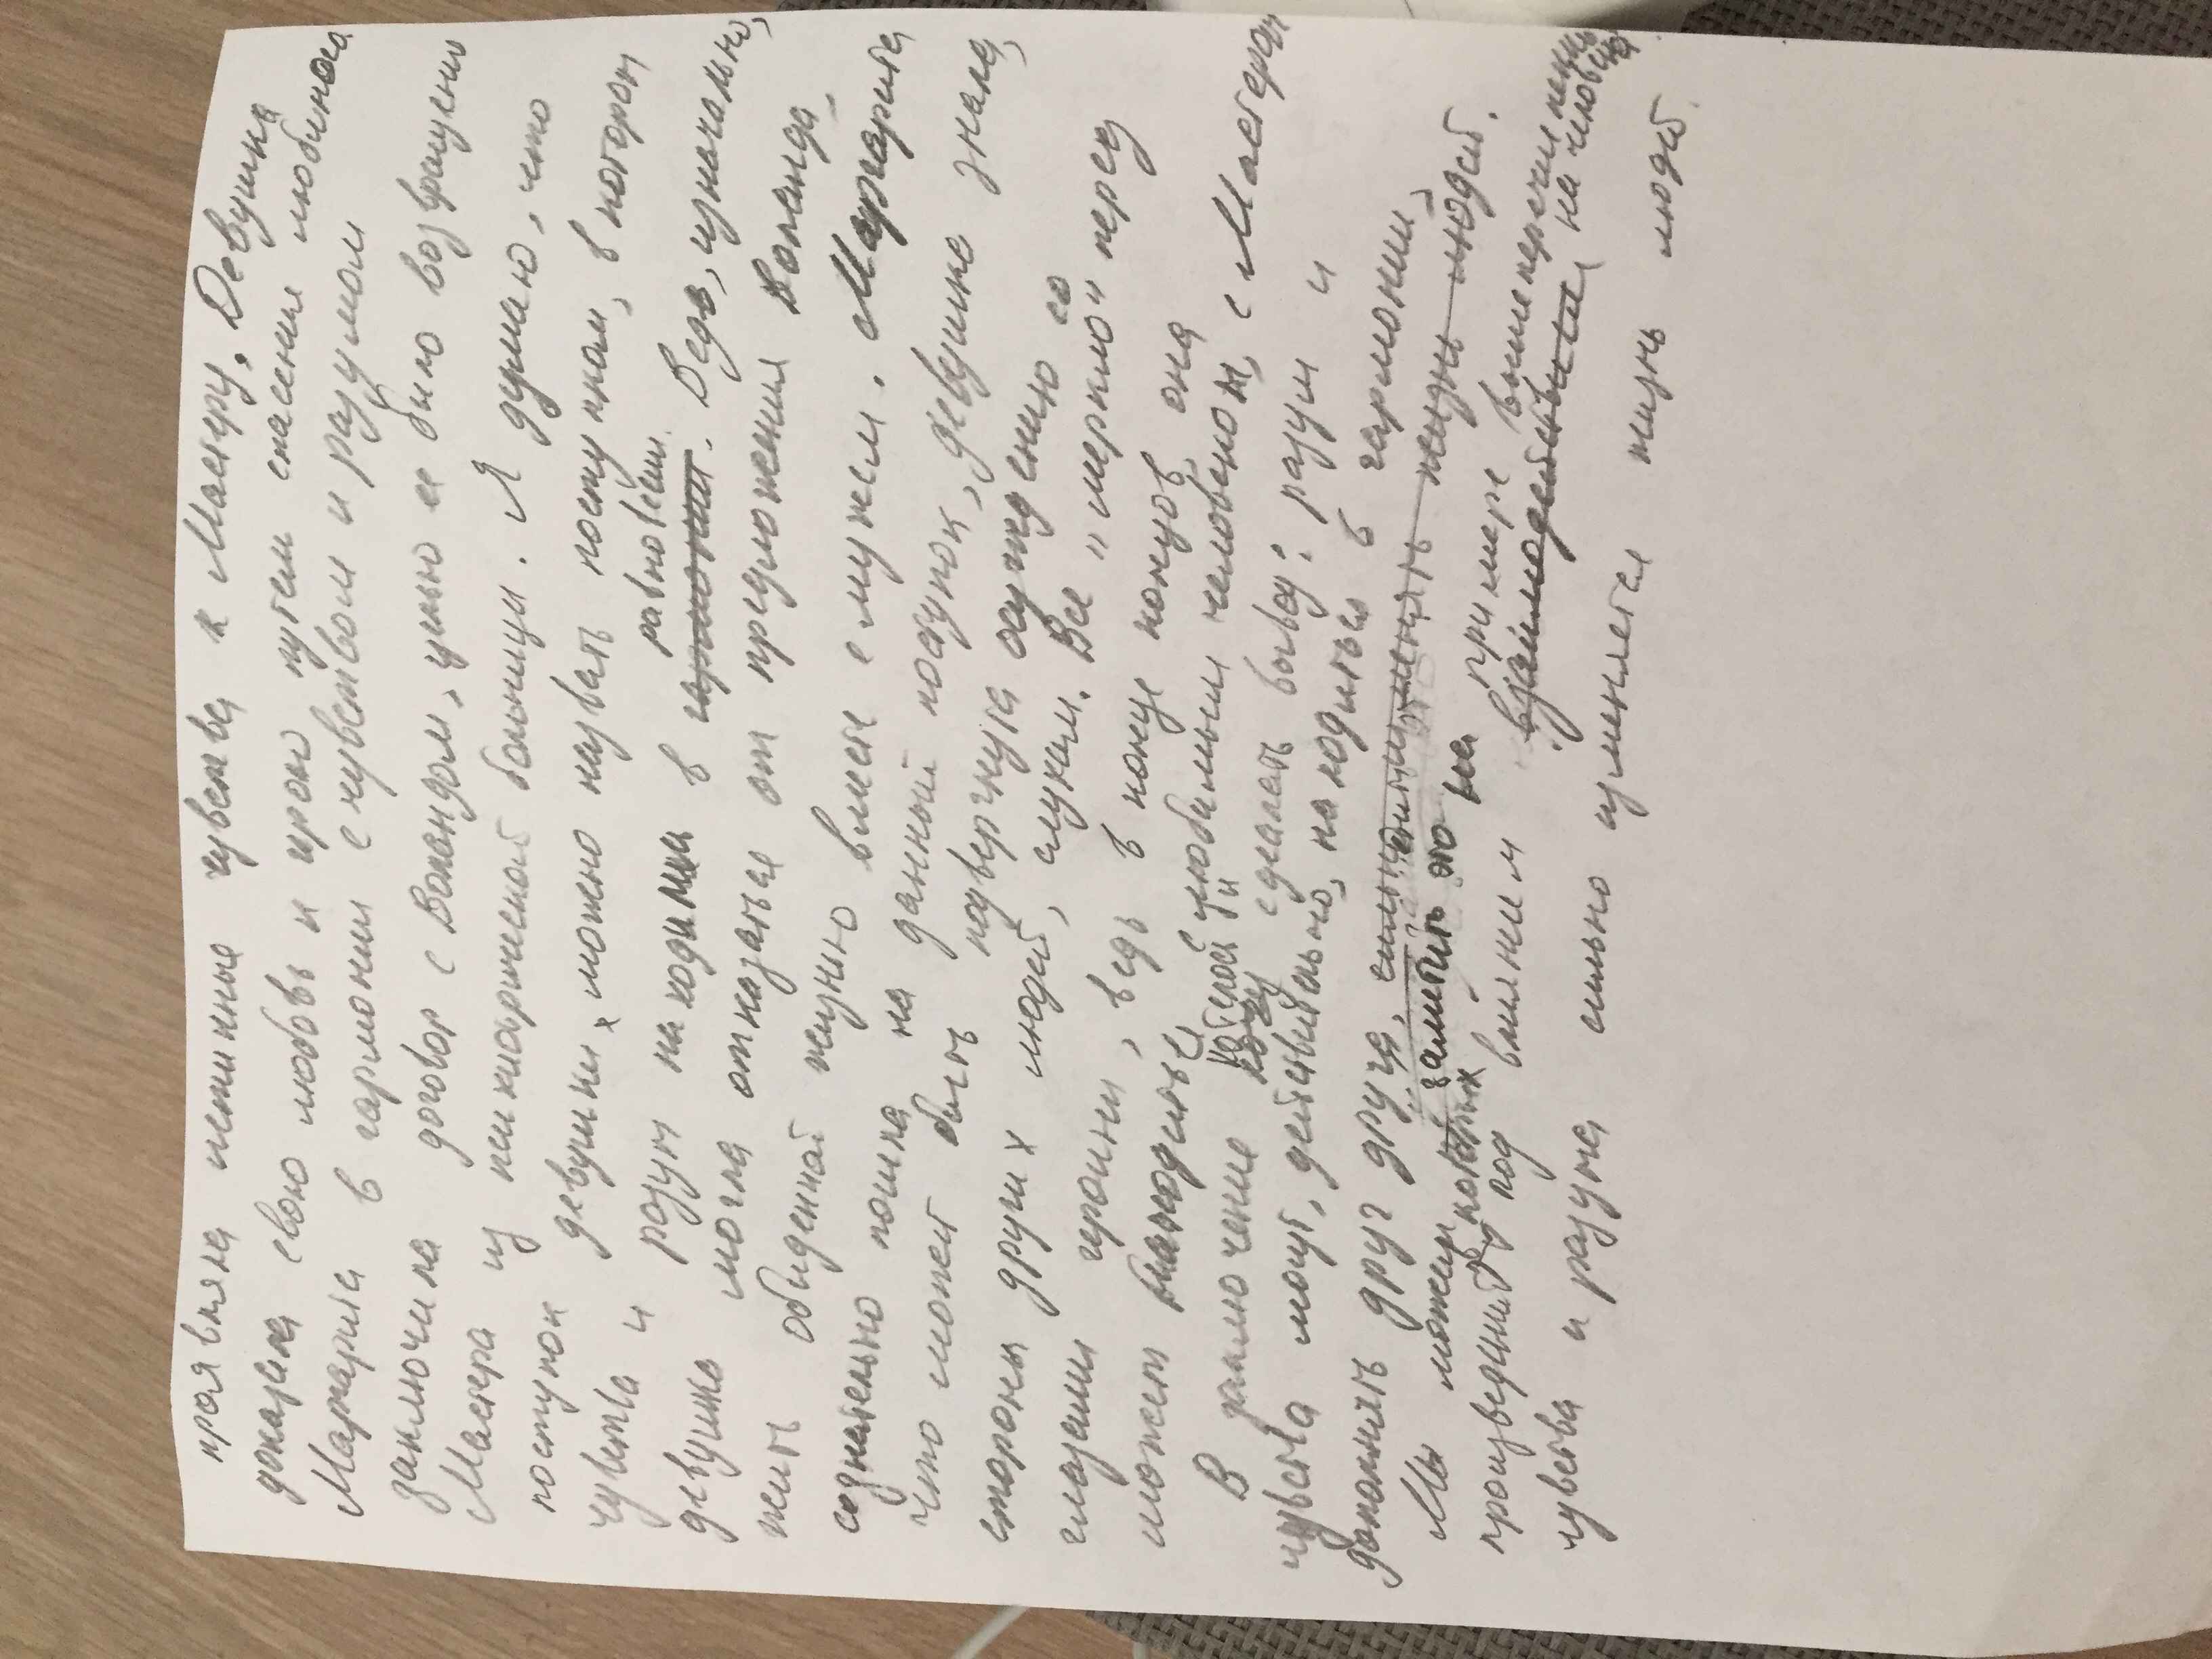 проявляла истинные чувства к Мастеру. Девушка
доказала свою любовь и иную путем спасения любимого
Маргарита в гармонии с чувством и разумом
заключила договор с Воландом, целью ее было возвращение
Мастера из психиатрической больницы. Я думаю, что
поступок девушки, можно назвать поступком, в котором
чувства и разум находились в равновесии. Ведь, изначально,
девушка могла отказаться от предложения Воланда,
жить обыденной жизнью вместе с мужем. Маргарита
сознательно пошла на данный поступок, девушке знала,
что может быть подвергнута осуждению со
стороны других людей, слухам. Все "меркло" перед
глазами героини, ведь в конце концов, она
может находиться с любимым человеком, с Мастером
В заключение хочу сделать вывод: разум и
чувства могут, действительно, находиться в гармонии,
дополнять друг друга, сильно изменять жизнь людей.
Мы можем заметить это на примере вышеперечисленных
произведений, в которых под влиянием взаимодействия на человека
чувства и разума сильно изменяется жизнь людей.